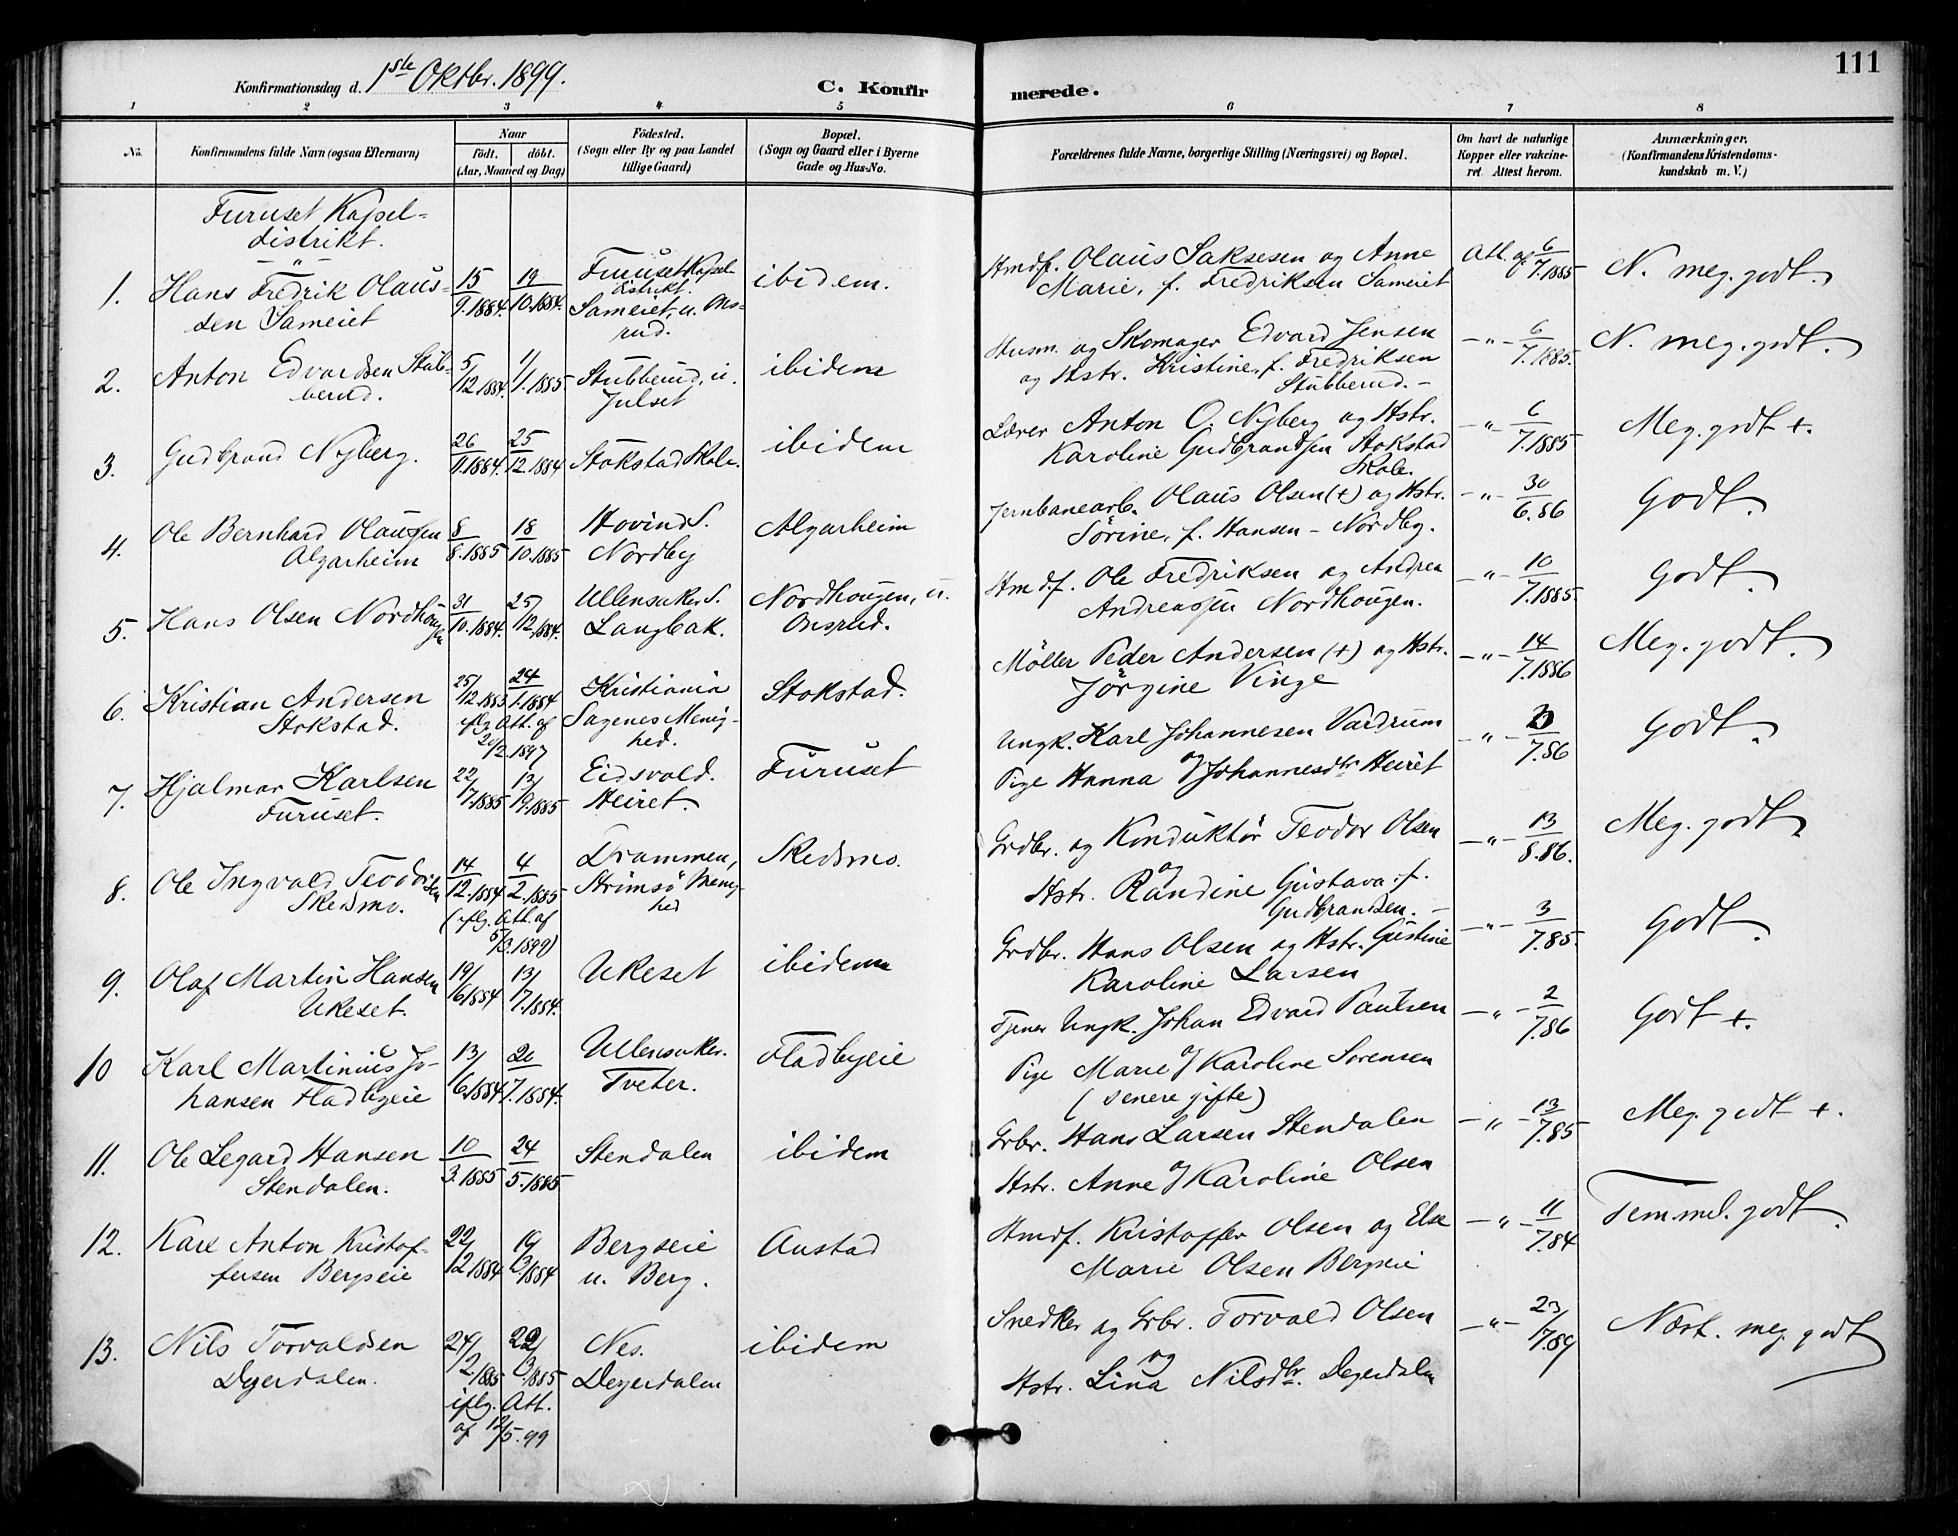 111
Konfirmationsdag d. 1ste Oktbr. 1899.
C. Konfirmerede.
1 2 3 4 5 6 7 8
No.
Konfirmandens fulde Navn (ogsaa Efternavn)
Naar
födt. döbt.
(Aar, Maaned og Dag)
Födested.
(Sogn eller By og paa Landet
tillige Gaard)
Bopæl.
(Sogn og Gaard eller i Byerne
Gade og Hus-No.
Forældrenes fulde Navne, borgerlige Stilling (Næringsvei) og Bopæl.
Om havt de naturlige
Kopper eller vakcine-
ret. Attest herom.
Anmærkninger.
(Konfirmandens Kristendoms-
kundskab m. V.)
Furuset Kapel-
distrikt.
1. Hans Fredrik Olaus-
sen Sameiet
15/9.1884. 19/10.1884.
Furuset Kapel
distrikt.
Sameiet, u. Ons-
rud.
ibidem.
Hmdf. Olaus Saksesen og Anne
Marie, f. Fredriksen Sameiet
Att. af 6/7.1885
N. meg. godt.
2. Anton Edvardsen Stub-
berud.
5/12.1884. 1/1.1885
Stubberud, u.
Julset
ibidem
Husm. og Skomager Edvard Jensen
og Hstr. Kristine, f. Fredriksen
Stubberud.-
-"- 6/7.1885.
N. meg. godt.
3. Gudbrand Nyberg.
26/11.1884. 25/12.1884
Stokstad Skole.
ibidem
Lærer Anton O. Nyberg og Hstr.
Karoline Gudbrandsen Stokstad
Skole.
-"- 6/7.1885
Meg. godt +.
4. Ole Bernhard Olaussen
Algarheim
8/8.1885 18/10.1885
Hovind S.
Nordby
Algarheim
Jernbanearb. Olaus Olsen (+) og Hstr.
Sörine, f. Hansen - Nordby.
-"- 30/6.86
Godt.
5. Hans Olsen Nordhou-
gen
31/10.1884. 25/12.1884.
Ullensaker S.
Langbak.
Nordhougen, u.
Onsrud.
Hmdf. Ole Fredriksen og Andrea
Andreassen Nordhougen.
-"- 10/7.1885.
Godt.
6. Kristian Andersen
Stokstad.
25/12.1883 24/1.1884
iflg. Att. af
20/2.1897
Kristiania
Sagenes Menig-
hed.
Stokstad.
Möller Peder Andersen (+) og Hstr.
Jörgine Vinge
-"- 14/7.1886
Meg. godt.
7. Hjalmar Karlsen
Furuset.
22/7.1885 13/9.1885
Eidsvold.
Heiret.
Furuset
Ungk. Karl Johannesen Vardrum
og
Pige Hanna Johannesdtr Heiret
-"- /7.86
Godt.
8. Ole Ingvald Teodor-
sen
Skedsmo.
14/12.1884 4/2.1885
(iflg. Att. af
5/3.1899)
Drammen,
Strömsö Menig-
hed
Skedsmo.
Grdbr. og Konduktör Teodor Olsen
og
Hstr. Randine Gustava f.
Gudbrandsen. -
-"- 13/8.86.
Meg. godt
9. Olaf Martin Hansen
Ukeset.
19/6.1884 13/7.1884.
Ukeset
ibidem
Grdbr. Hans Olsen og Hstr. Gustine
Karoline Larsen
-"- 3/7.85.
Godt.
10 Karl Martinius Jo-
hansen Fladbyeie
13/6.1884 20/7.1884.
Ullensaker.
Tveter.
Fladbyeie
Tjener Ungk. Johan Edvard Paulsen
og
Pige Marie Karoline Sorensen
(senere gifte)
-"- 2/7.86
Godt +.
11. Ole Legard Hansen
Stendalen.
10/3.1885 24/5.1885
Stendalen
ibidem
Grbr. Hans Larsen Stendalen
og
Hstr. Anne Karoline Olsen
-"- 13/7.85
Meg. godt +.
12. Karl Anton Kristof-
fersen Bergseie
22/12.1884 19/3.1884
Bergseie
u. Berg.
Austad
Hmdf. Kristoffer Olsen og Else
Marie Olsen Bergseie
-"- 11/7.84
Temmel. godt.
13. Nils Torvaldsen
Dyerdalen.
24/2.1885 22/3.1885
iflg. Att.
af 12/5.99
Nes.
Deyerdalen
ibidem
Snedker og Grbr. Torvald Olsen
og
Hstr. Lina Nilsdtr. Deyerdalen
-"- 23/7.89
Næst. meg. godt